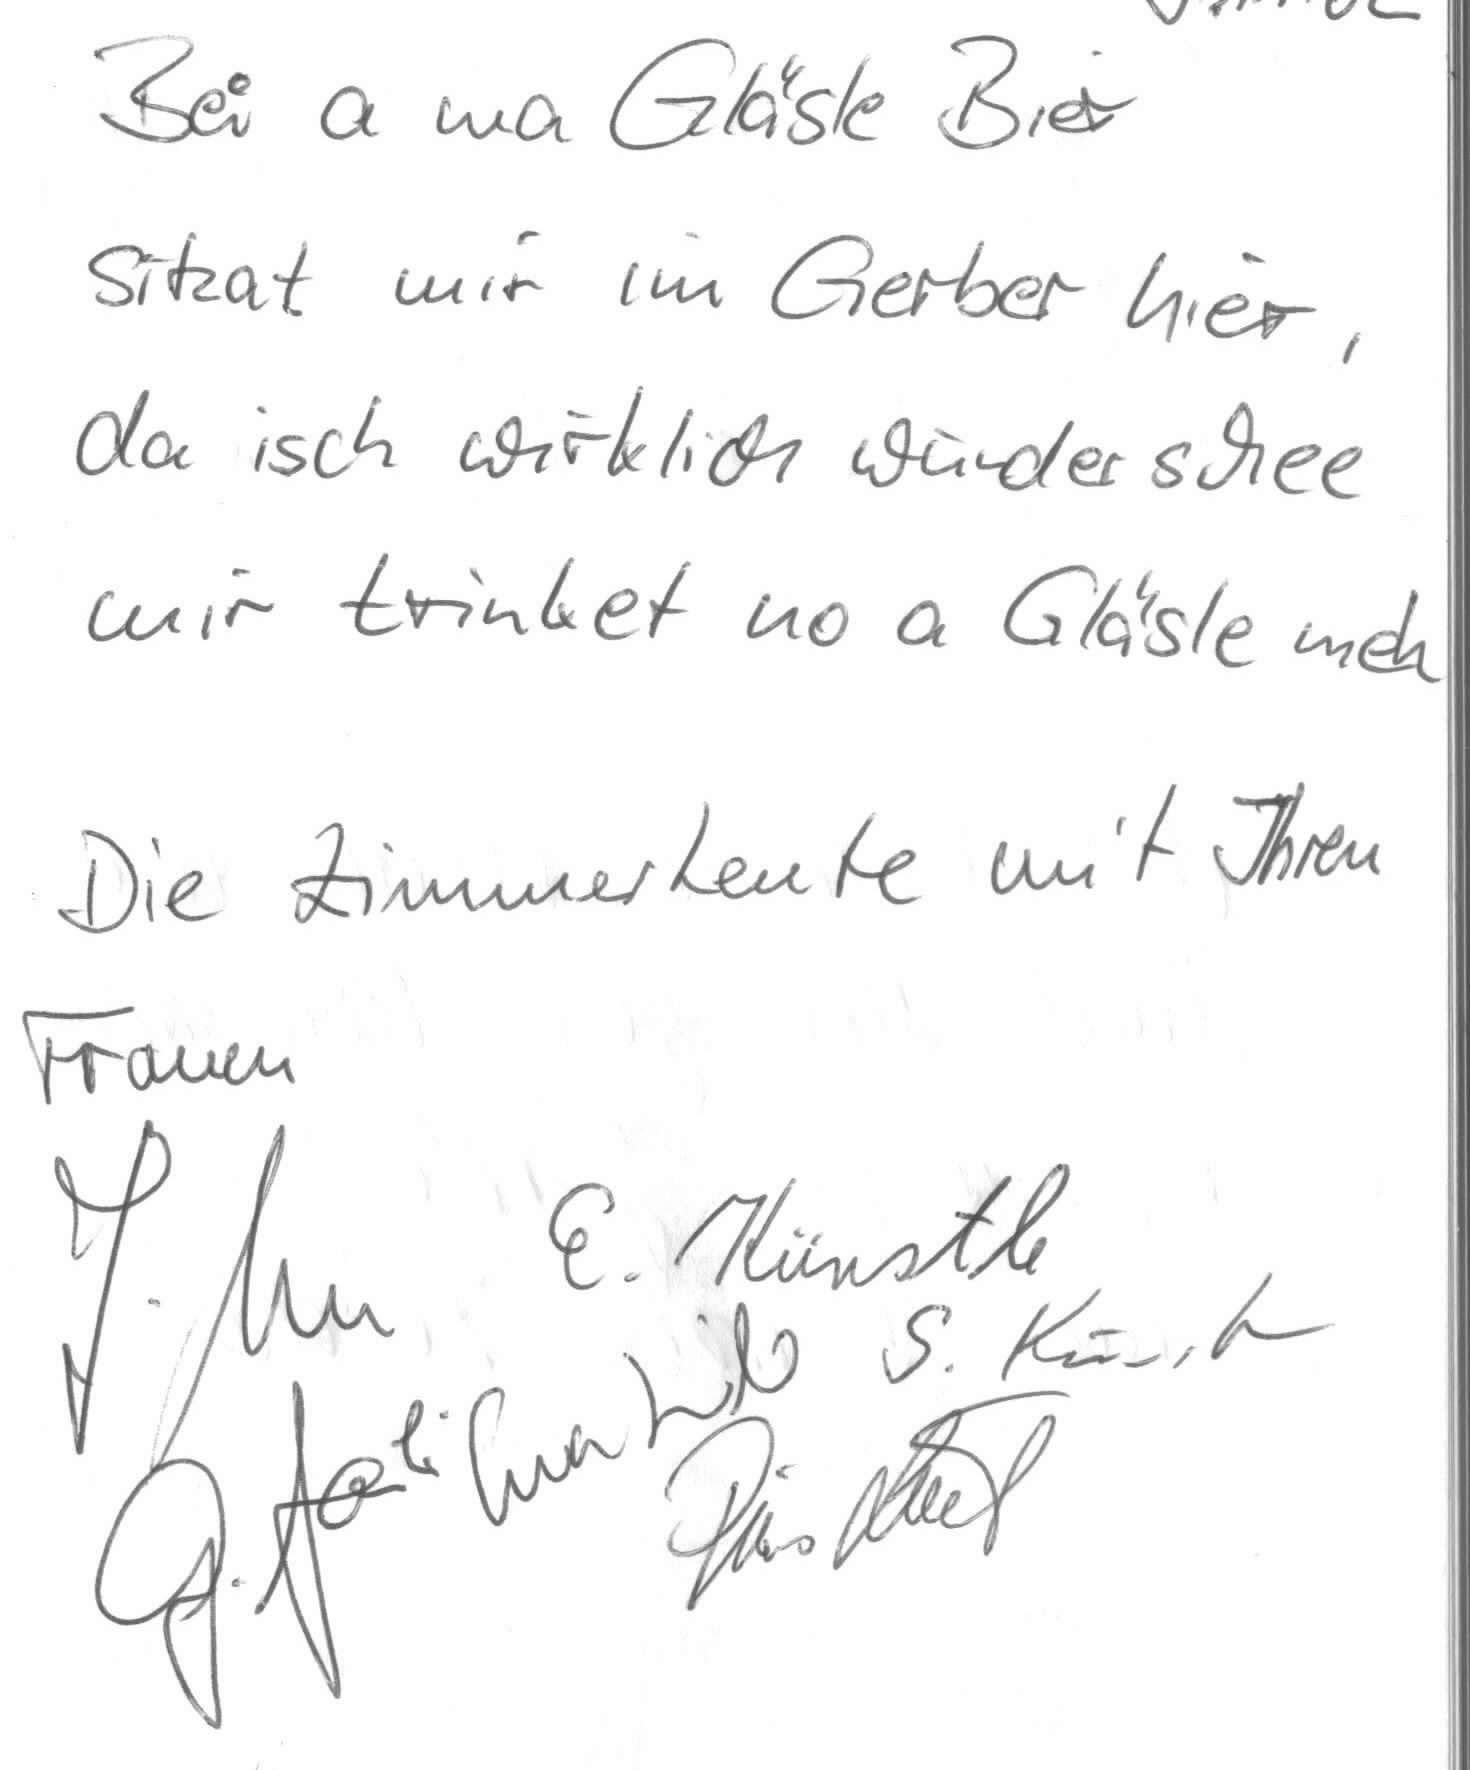 Bei a ma Gläsle Bier
sitzat mir im Gerber hier,
da isch wirklich wunderschee
mir trinket no a Gläsle meh
Die Zimmerleute mit Ihren
Frauen
E. Künstle
S. Künstle
G.